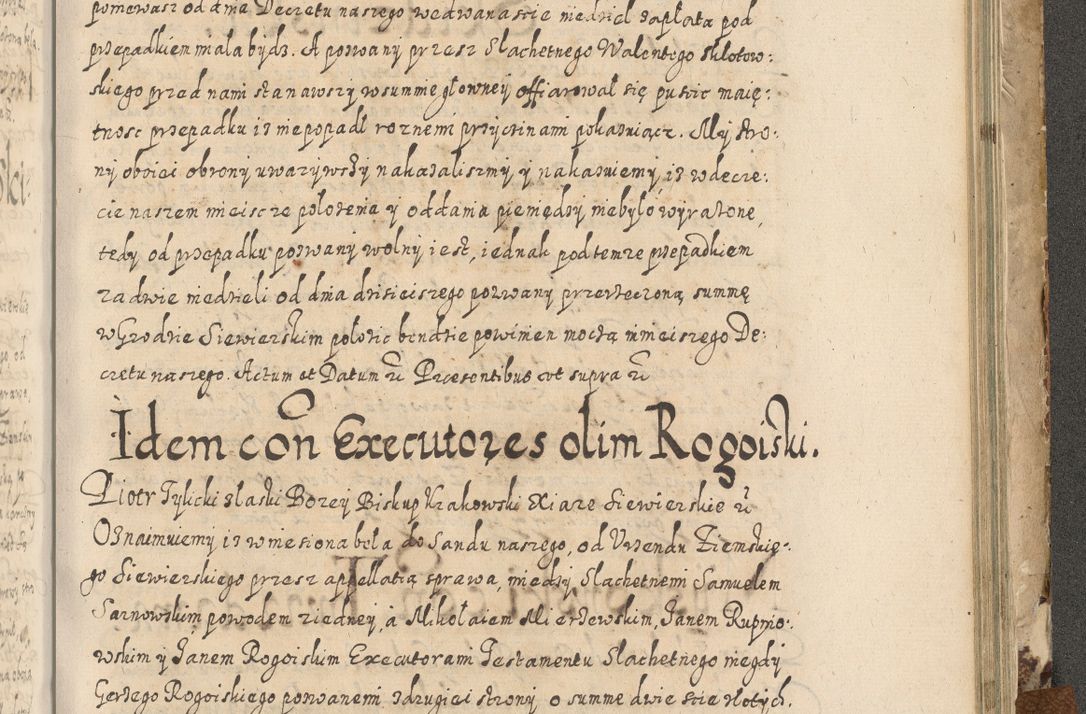 ponewasz od dnia Decretu naszego wedwanascie niedziel zapłata pod
przepadkiem miala bydz. A pozwany przesz Slachetnego Walentego Sklotow:
skiego przed nami stanawszy w summie głowney offiarowal się puscic maię:
tnosc przepadku iz niepopadl roznemi przycinami pokazuiącz. My stro:
ny oboiei obrony uwazywszy nakazalismy y nakazuiemy, iz w decre:
cie naszem mieiscze połozenia y oddania pieniędzy niebyło wyrazone,
tedy od przepadku pozwany wolny iest, iednak pod temze przepadkiem
za dwie niedzieli od dnia dzisieiszego pozwany przerzeczoną summę
w Grodzie Siewierskim połozic bendzie powinien moczą ninieiszego De:
cretu naszego. Actum et Datum etc Praesentibus vt supra etc
Idem con Executores olim Rogoiski.
Piotr Tylicki z laski Bozey Biskup Krakowski Xiaze Siewierskie etc
Oznaimuiemy iz wniesiona bela do Sandu naszego, od Vrzendu Ziemskie:
go Siewierskiego przesz appellatią sprawa, miedzy Slachetnemi Samuelem
Sarnowskim powodem ziedney, a Mikolaiem Mierzewskim, Janem Rupnio:
wskim y Janem Rogoiskim Executorami Testamentu Slachetnego niegdy
Gerzego Rogoiskiego pozwanemi z drugiei strony o summe dwie scie złotych.